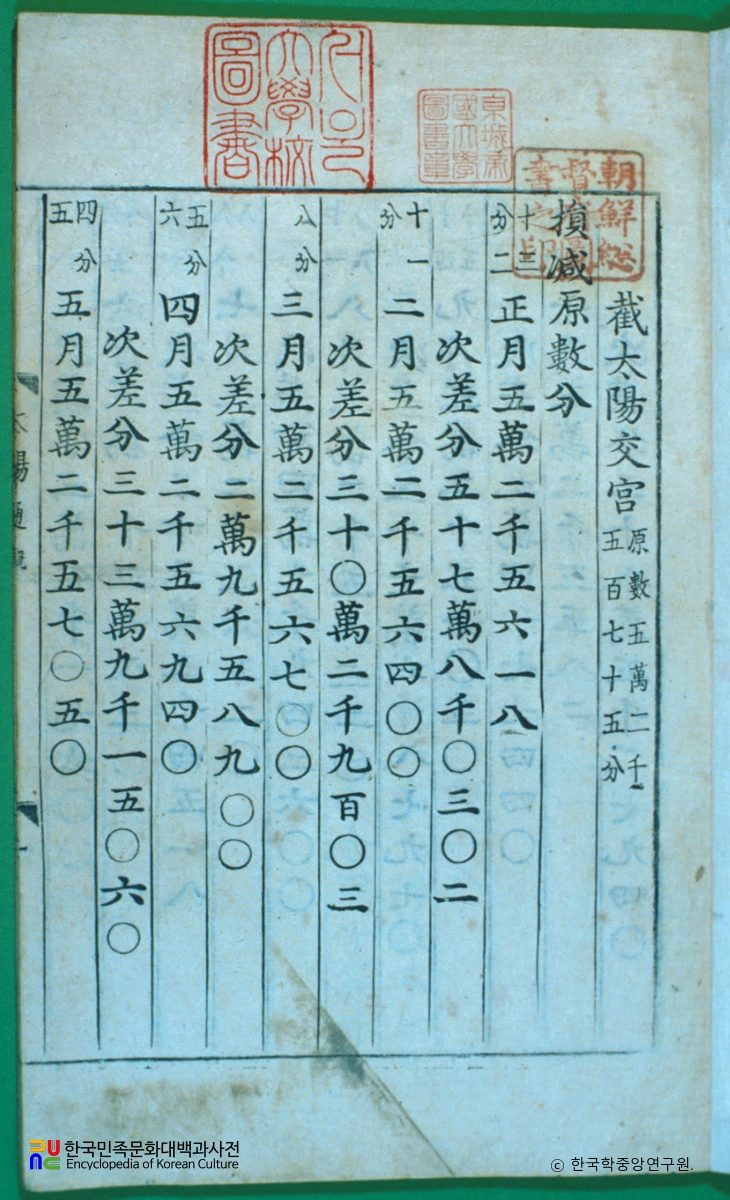 서울大學校圖書
京城帝國大學圖書章
朝鮮総督府圖書之印
截太陽交宮 原數五萬二千五百七十五分
損減原數分
十三分二 正月五萬二千五六一八
次差分五十七萬八千〇三〇二
十一分 二月五萬二千五六四〇〇
次差分三十〇萬二千九百〇三
八分 三月五萬二千五六七〇〇
次差分二萬九千五八九〇〇
五分六 四月五萬二千五六九四〇
次差分三十三萬九千一五〇六〇
四分五 五月五萬二千五七〇五〇
太陽通軌 一
한국민족문화대백과사전
Encyclopedia of Korean Culture
ⓒ 한국학중앙연구원.